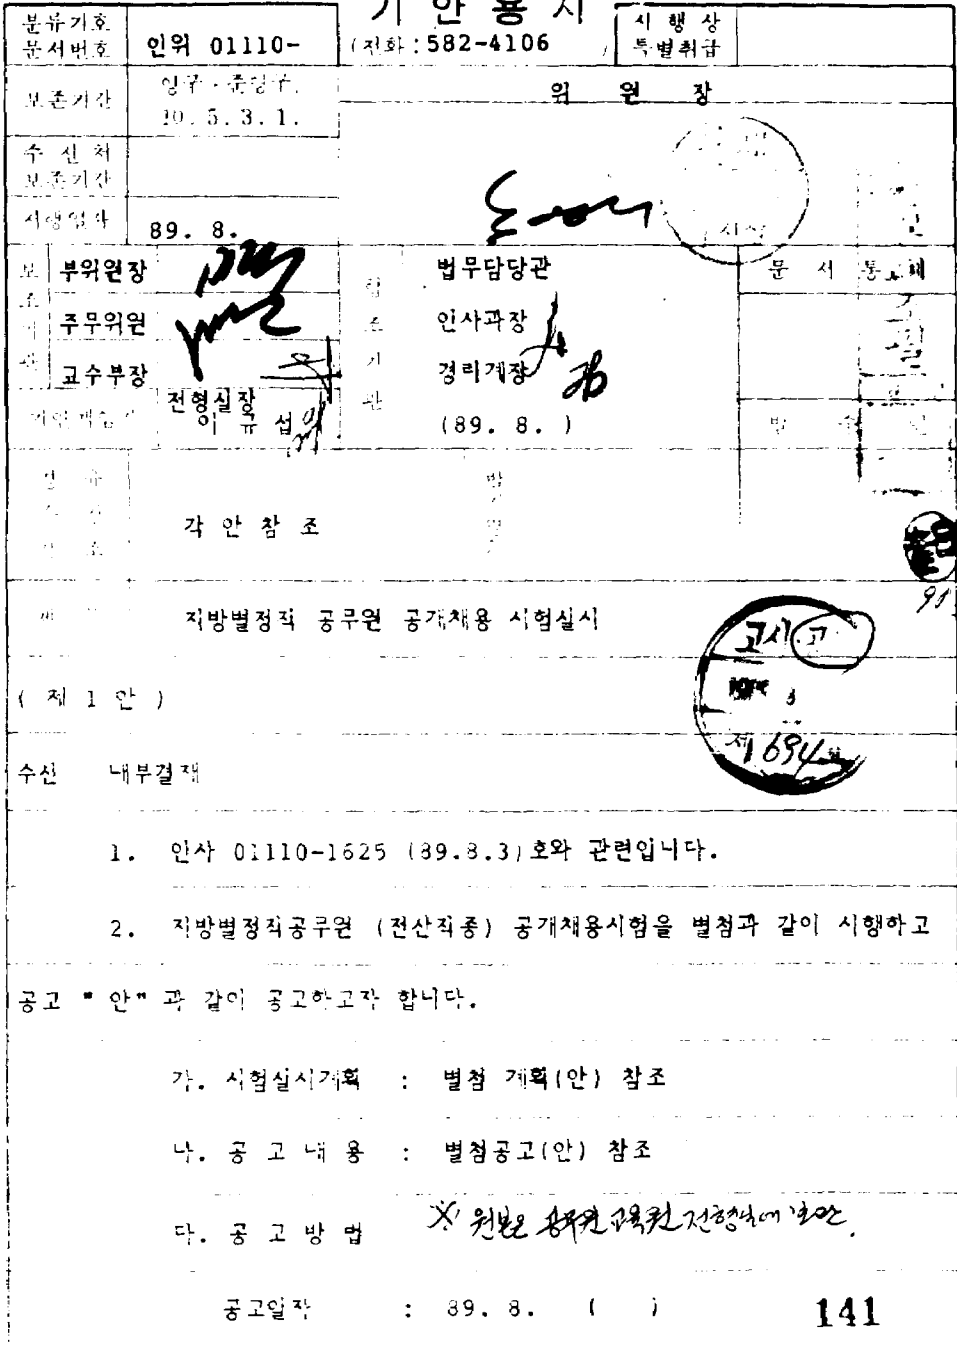 기 안 용 지
분류기호
문서번호
인위 01110-
(전화:582-4106 )
시 행 상
특별취급
보존기간
영구·준영구.
10. 5. 3. 1.
위 원 장
수 신 처
보존기간
시행일자
89. 8.
보조기관
부위원장
주무위원
교수부장
협조기관
법무담당관
인사과장
경리계장
(89. 8. )
문 서 통 제
기안책임자
전형실장
이 규 섭
발 송
각 안 참 조
지방별정직 공무원 공개채용 시험실시
고시 고
제 694
( 제 1 안 )
수신 내부결재
1. 인사 01110-1625 (89.8.3)호와 관련입니다.
2. 지방별정직공무원 (전산직종) 공개채용시험을 별첨과 같이 시행하고
공고 " 안" 과 같이 공고하고자 합니다.
가. 시험실시계획 : 별첨 계획(안) 참조
나. 공 고 내 용 : 별첨공고(안) 참조
※ 원본은 공무원 교육원 전형실에 보관.
다. 공 고 방 법
공고일자 : 89. 8. ( )
141